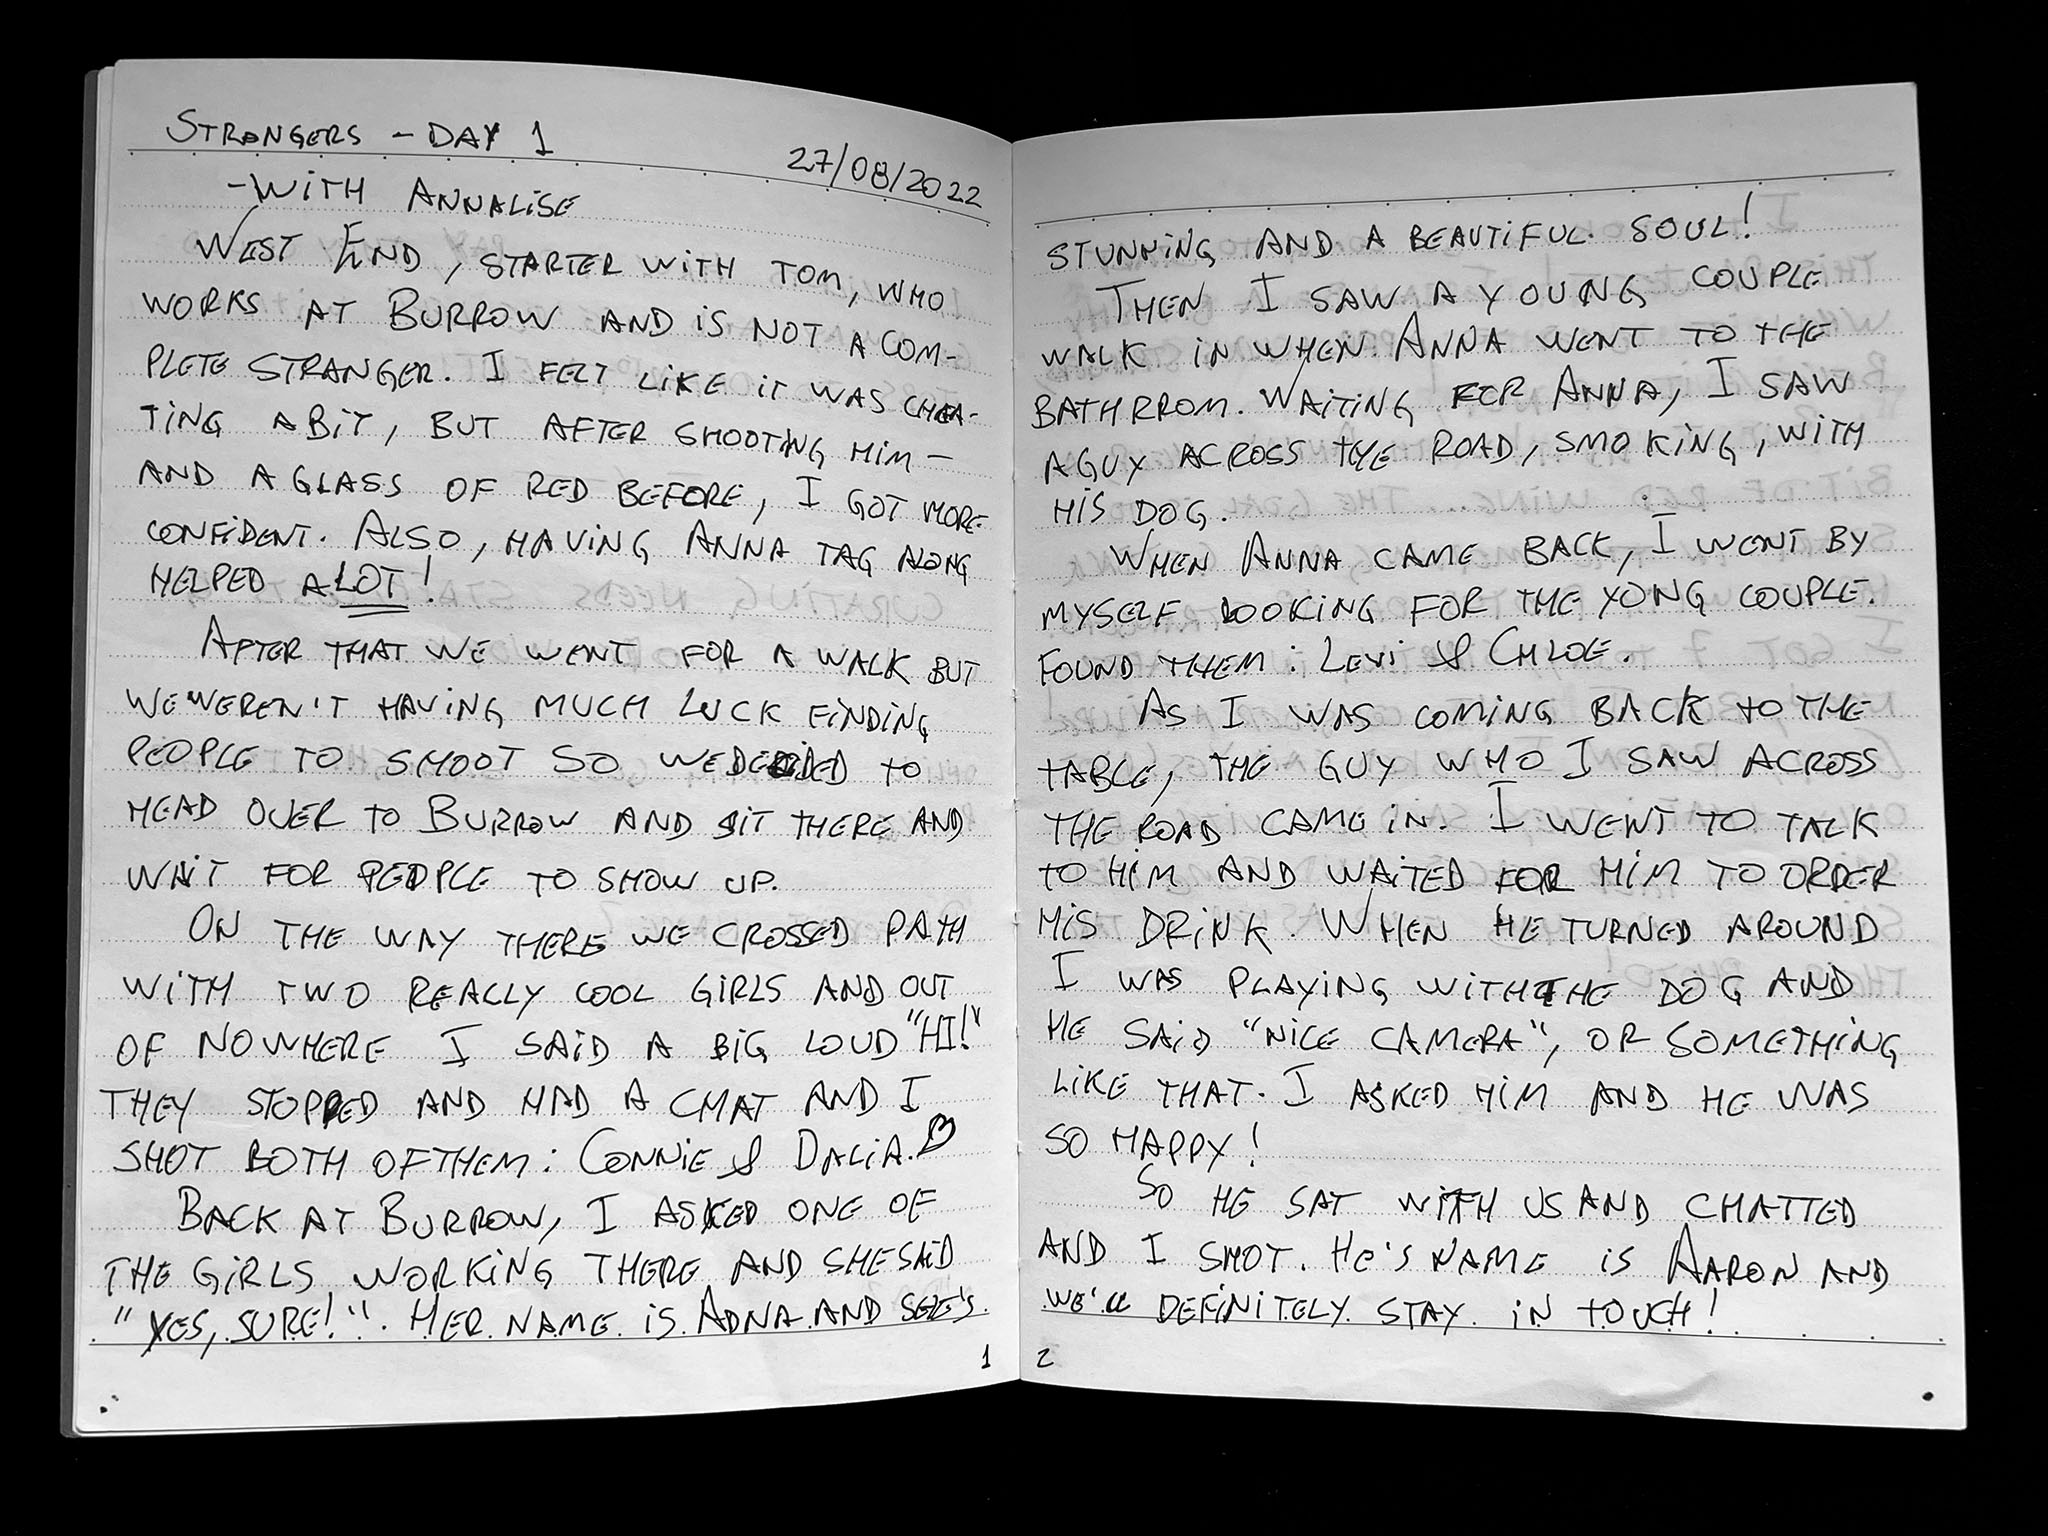 STRANGERS - DAY 1
27/08/2022
- WITH ANNALISE
WEST END, STARTER WITH TOM, WHO
WORKS AT BURROW AND IS NOT A COM-
PLETE STRANGER. I FELT LIKE IT WAS CHEA-
TING A BIT, BUT AFTER SHOOTING HIM -
AND A GLASS OF RED BEFORE, I GOT MORE
CONFIDENT. ALSO, HAVING ANNA TAG ALONG
HELPED A LOT!
AFTER THAT WE WENT FOR A WALK BUT
WE WEREN'T HAVING MUCH LUCK FINDING
PEOPLE TO SHOOT SO WE DECIDED TO
HEAD OVER TO BURROW AND SIT THERE AND
WAIT FOR PEOPLE TO SHOW UP.
ON THE WAY THERE WE CROSSED PATH
WITH TWO REALLY COOL GIRLS AND OUT
OF NOWHERE I SAID A BIG LOUD "HI!"
THEY STOPPED AND HAD A CHAT AND I
SHOT BOTH OF THEM: CONNIE & DALIA. ♡
BACK AT BURROW, I ASKED ONE OF
THE GIRLS WORKING THERE AND SHE SAID
"YES, SURE!". HER NAME IS ADNA AND SHE'S
1
STUNNING AND A BEAUTIFUL SOUL!
THEN I SAW A YOUNG COUPLE
WALK IN WHEN ANNA WENT TO THE
BATHRROM. WAITING FOR ANNA, I SAW
A GUY ACROSS THE ROAD, SMOKING, WITH
HIS DOG.
WHEN ANNA CAME BACK, I WENT BY
MYSELF LOOKING FOR THE YONG COUPLE.
FOUND THEM: LEVI & CHLOE.
AS I WAS COMING BACK TO THE
TABLE, THE GUY WHO I SAW ACROSS
THE ROAD CAME IN. I WENT TO TALK
TO HIM AND WAITED FOR HIM TO ORDER
HIS DRINK. WHEN HE TURNED AROUND
I WAS PLAYING WITH THE DOG AND
HE SAID "NICE CAMERA", OR SOMETHING
LIKE THAT. I ASKED HIM AND HE WAS
SO HAPPY!
SO HE SAT WITH US AND CHATTED
AND I SHOT. HE'S NAME IS AARON AND
WE'LL DEFINITELY STAY IN TOUCH!
2